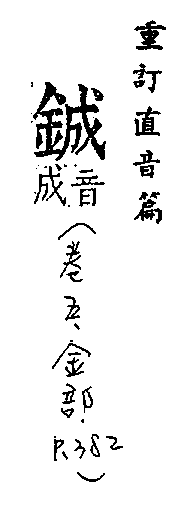 重訂直音篇
鋮
音成
(卷五、金部、P.382)